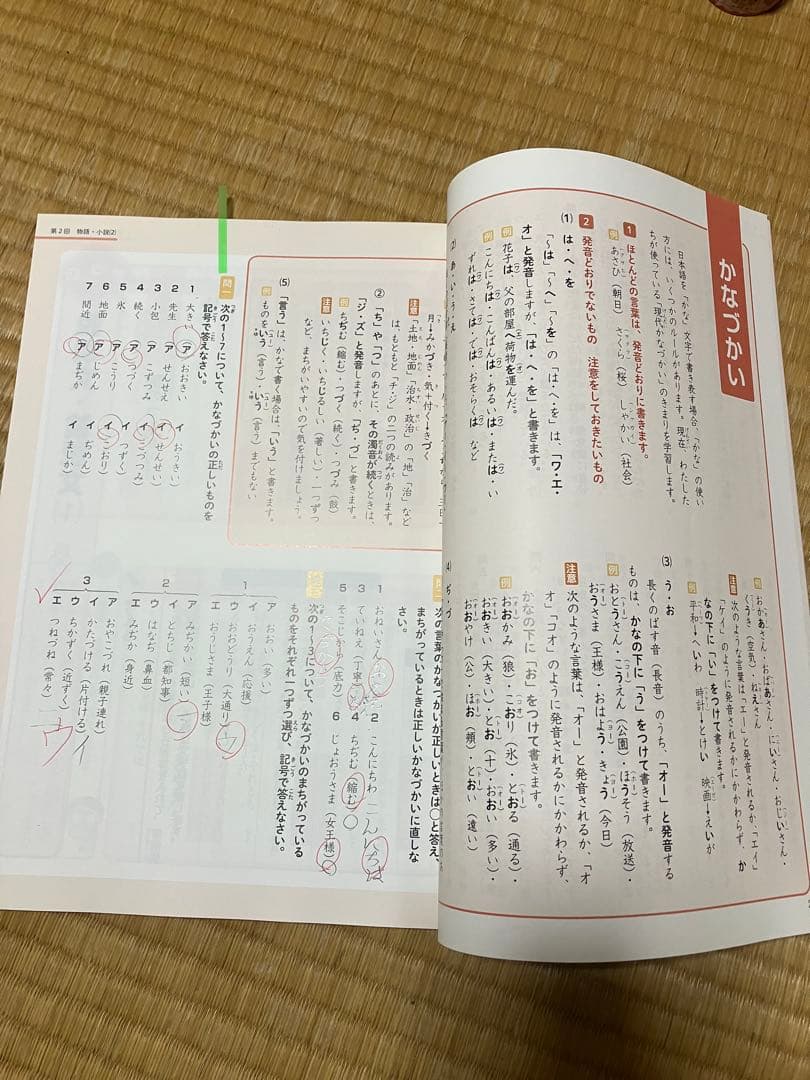 かなづかい
日本語を「かな」文字で書き表す場合、「かな」の使い
方には、いくつかのルールがあります。現在、わたした
ちが使っている「現代かなづかい」のきまりを学習します。
1 ほとんどの言葉は、発音どおりに書きます。
例 あさひ(朝日) さくら(桜) しゃかい(社会)
2 発音どおりでないもの 注意をしておきたいもの
(1) は・へ・を
「〜は」「〜へ」「〜を」の「は・へ・を」は、「ワ・エ・
オ」と発音しますが、「は・へ・を」と書きます。
例 花子は、父の部屋へ荷物を運んだ。
例 こんにちは・こんばんは・あるいは・または・い
ずれは・さては・では・おそらくは など
(2) あ・い・う・え
例 おかあさん・おばあさん・にいさん・おじいさん・
くうき(空気)・ねえさん
注意 次のような言葉は「エー」と発音されるか、「エイ」
「ケイ」のように発音されるかにかかわらず、か
なの下に「い」をつけて書きます。
例 平和→へいわ 時計→とけい 映画→えいが
(3) う・お
長くのばす音(長音)のうち、「オー」と発音する
ものは、かなの下に「う」をつけて書きます。
例 おとうさん・こうえん(公園)・ほうそう(放送)・
おうさま(王様)・おはよう・きょう(今日)
注意 次のような言葉は、「オー」と発音されるか、「オ
オ」「コオ」のように発音されるかにかかわらず、
かなの下に「お」をつけて書きます。
例 おおかみ(狼)・こおり(氷)・とおる(通る)・
おおきい(大きい)・とお(十)・おおい(多い)・
おおやけ(公)・ほお(頬)・とおい(遠い)
(4) ぢ・づ
第2回 物語・小説(2)
月→みかづき・気+付く→きづく
注意 「土地・地面」「治水・政治」の「地」「治」など
は、もともと「チ・ジ」の二つの読みがあります。
② 「ち」や「つ」のあとに、その濁音が続くときは、
「ジ・ズ」と発音しますが、「ぢ・づ」と書きます。
例 ちぢむ(縮む)・つづく(続く)・つづみ(鼓)
注意 いちじく・いちじるしい(著しい)・一つずつ
など、まちがいやすいので気を付けましょう。
(5) 「言う」は、かなで書く場合は、「いう」と書きます。
例 ものをいう(言う)・いう(言う)までもない
問一 次の1〜7について、かなづかいの正しいものを
記号で答えなさい。
1 大きい ア おおきい イ おうきい
2 先生 ア せんせえ イ せんせい
3 小包 ア こずつみ イ こづつみ
4 続く ア つづく イ つずく
5 氷 ア こうり イ こおり
6 地面 ア じめん イ ぢめん
7 間近 ア まぢか イ まじか
次の言葉のかなづかいが正しいときは○と答え、
まちがっているときは正しいかなづかいに直しな
さい。
1 おねいさん
2 こんにちわ こんにちは
3 ていねえ(丁寧)
4 ちぢむ(縮む) ○
5 そこじから(底力)
6 じょおうさま(女王様)
次の1〜3について、かなづかいのまちがっている
ものをそれぞれ一つずつ選び、記号で答えなさい。
1
ア おおい(多い)
イ おうえん(応援)
ウ おおどうり(大通り) ウ
エ おうじさま(王子様)
2
ア みぢかい(短い)
イ とちじ(都知事)
ウ はなぢ(鼻血)
エ みぢか(身近)
3
ア おやこづれ(親子連れ)
イ かたづける(片付ける) イ
ウ ちかずく(近ずく) ウ
エ つねづね(常々)